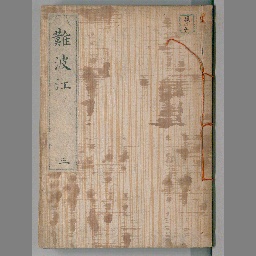 難波江
三